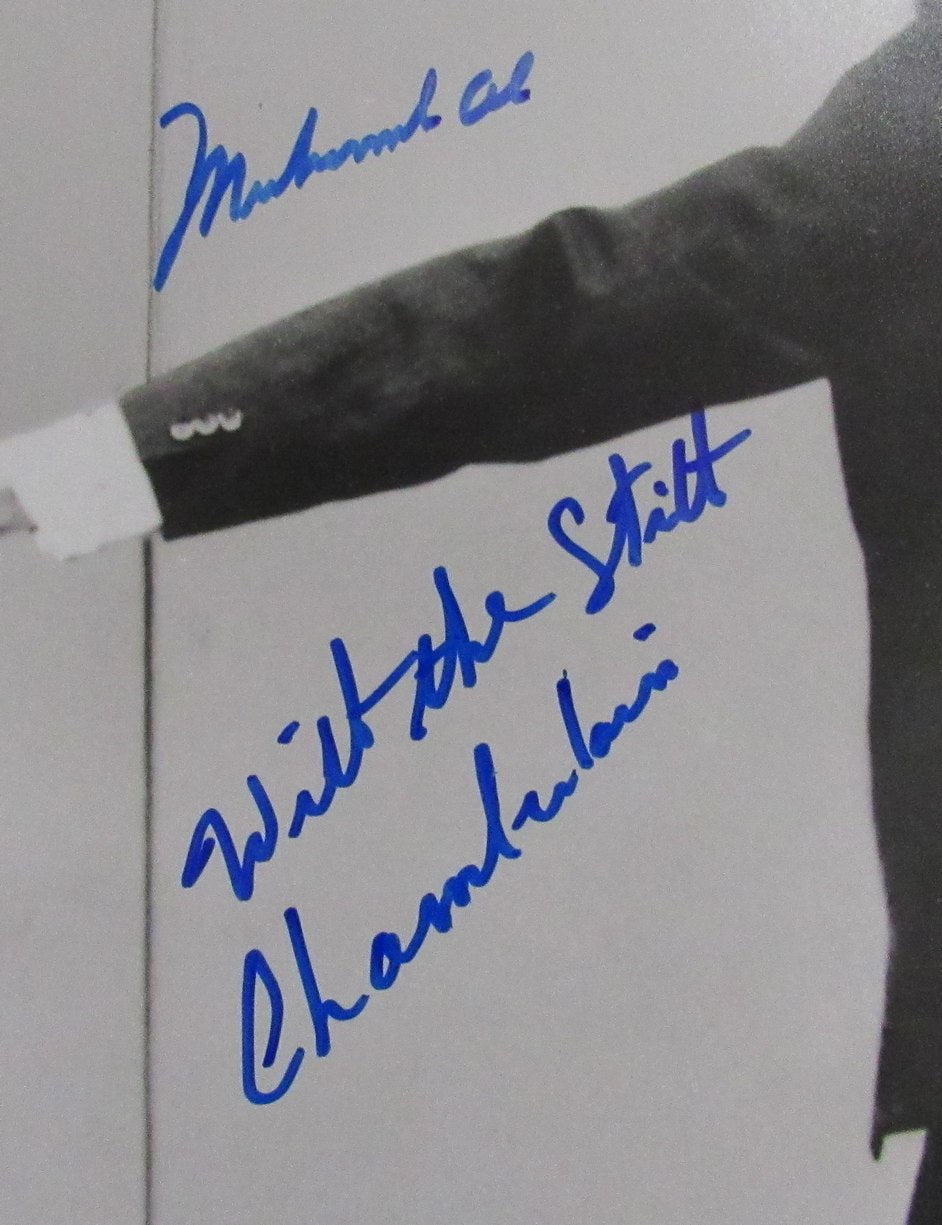 Muhammad Ali
Wilt the Stilt
Chamberlain